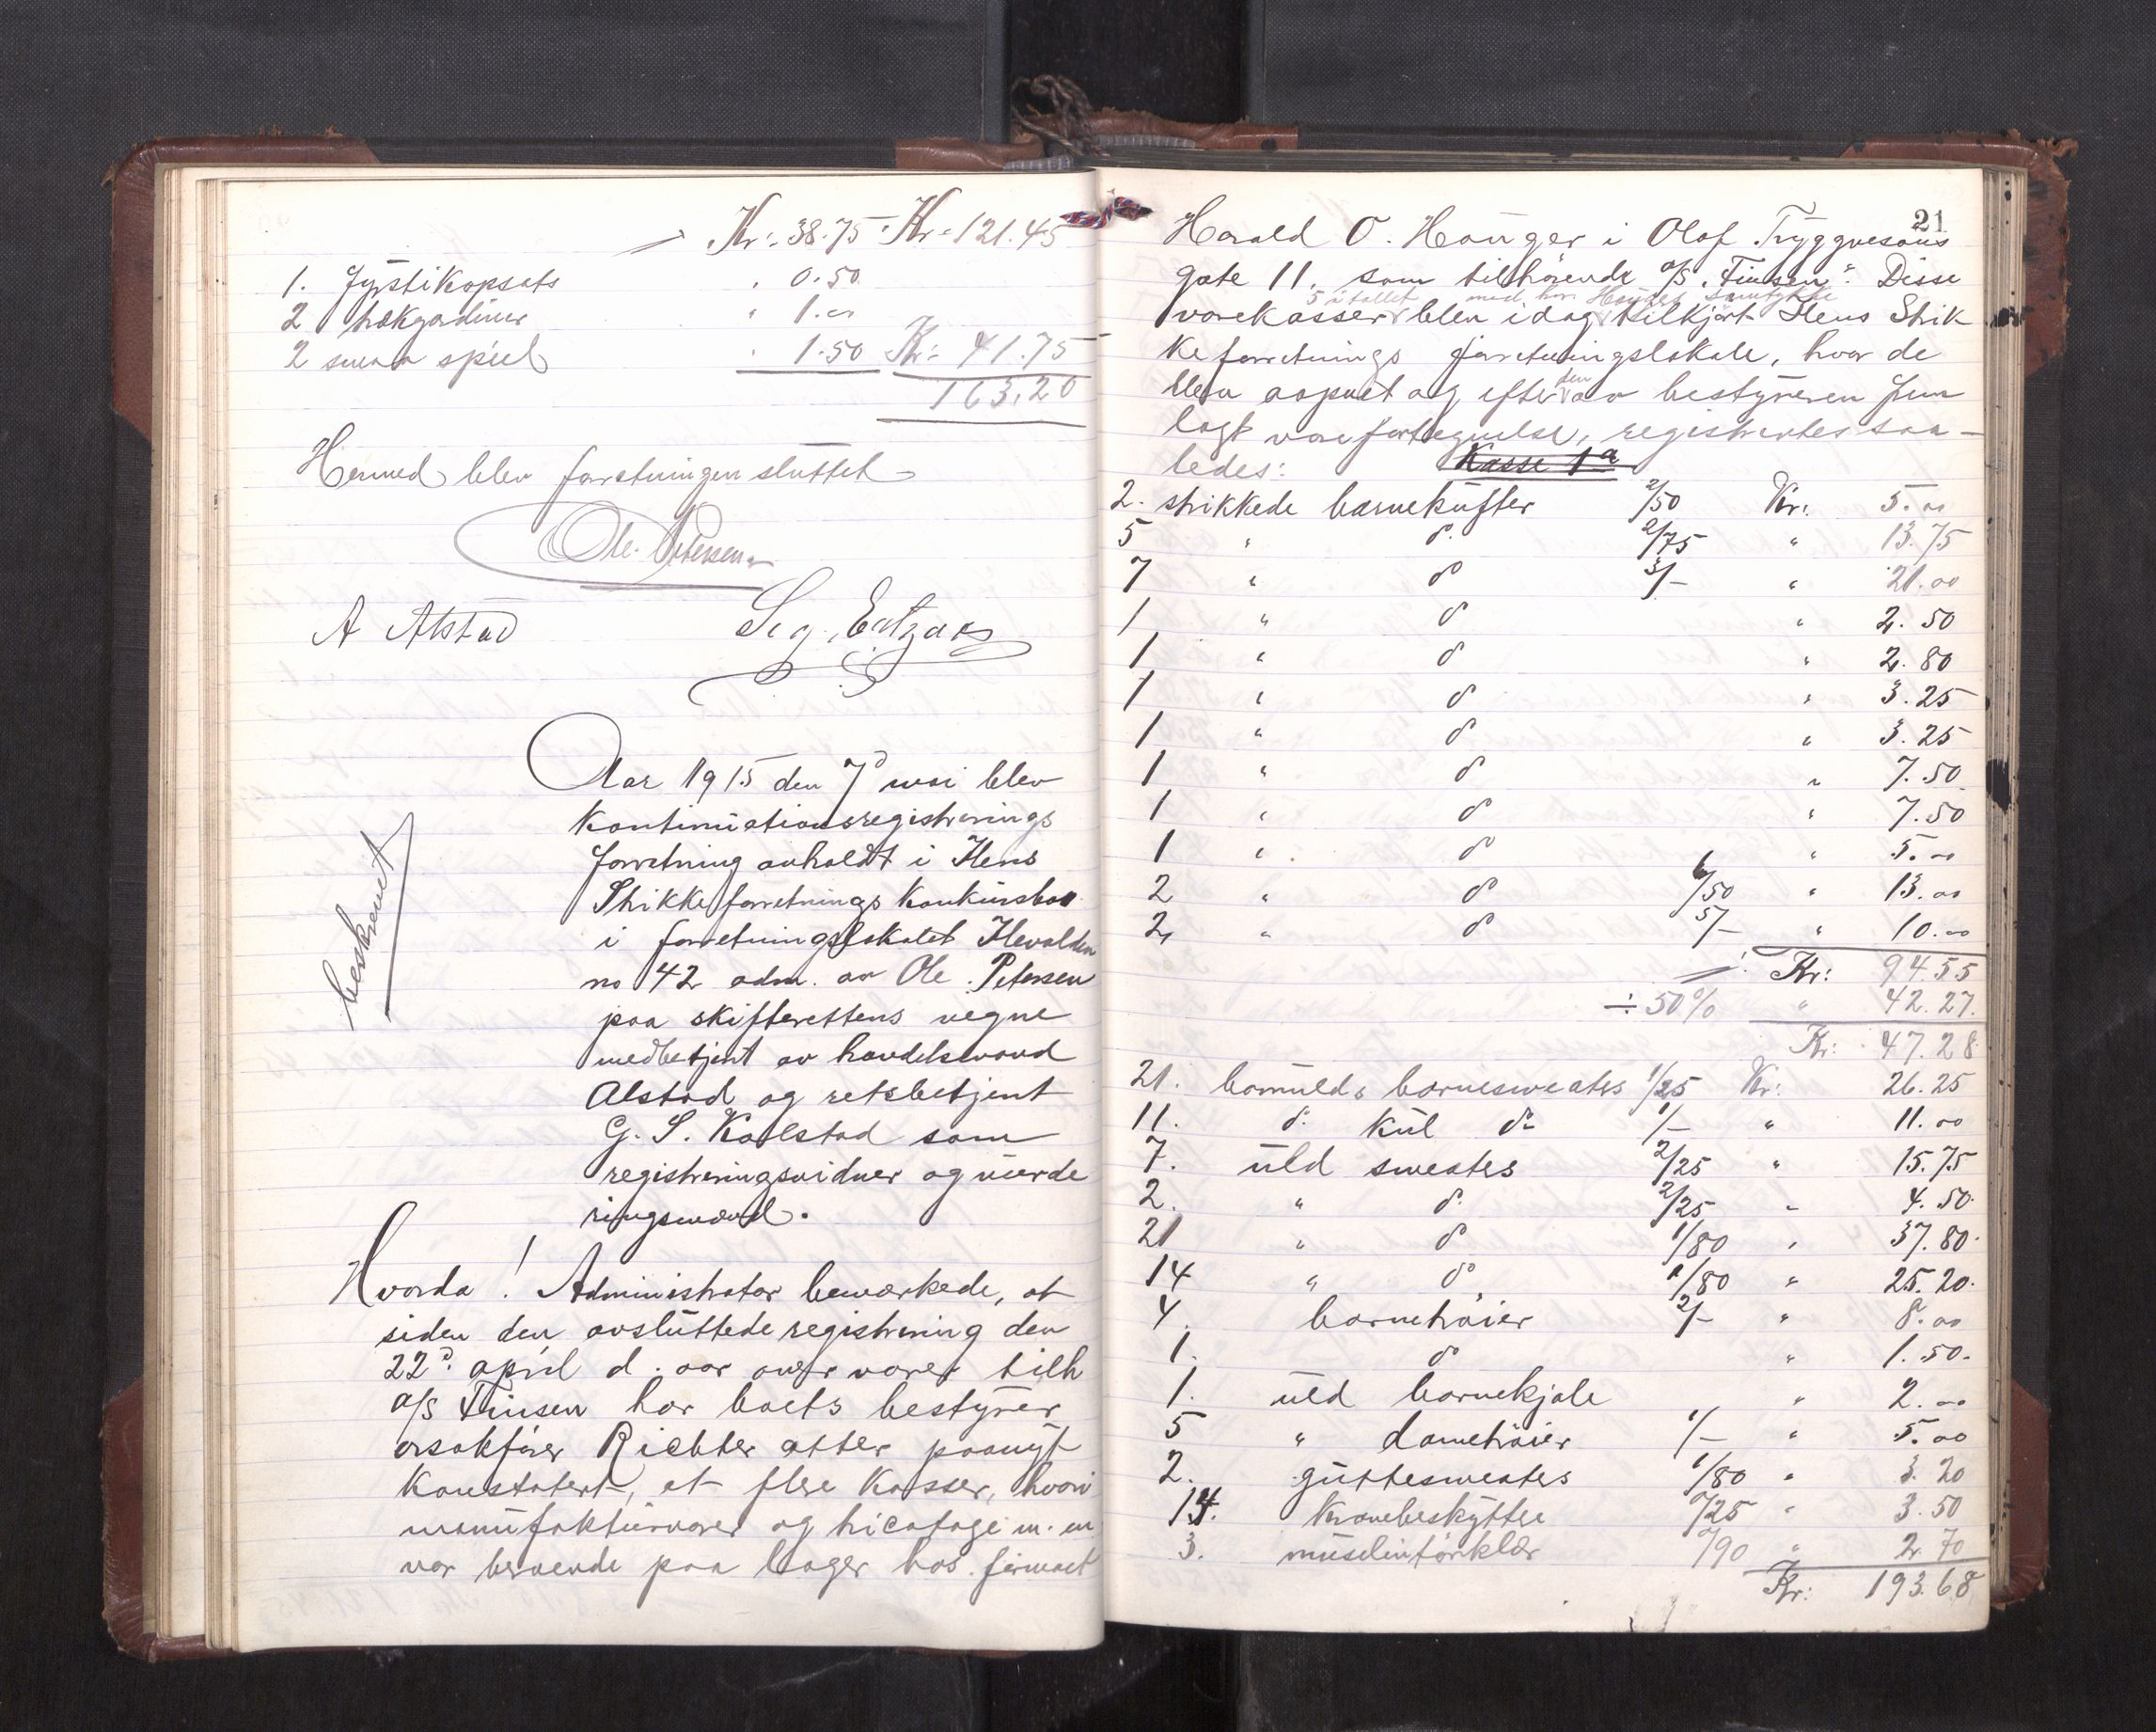 Kr: 38.75 Kr: 121.45
1. fyrstikopsats " 0.50
2 trekgardiner " 1.00
2 smaa speil " 1.50 Kr: 41.75
163.20
Hermed blev forretningen sluttet
Ole Petersen
A Alstad Sig.
beskrevet
Aar 1915 den 7d mai blev
kontinuationsregistrerings
forretning avholdt i Ilens
Strikkeforretnings konkursbo
i forretningslokalet Ilevolden
no 42 adm. av Ole Petersen
paa skifterettens vegne
medbetjent av handelsmand
Alstad og retsbetjent
G. S. Karlstad som
registreringsvidner og vurde
ringsmænd.
Hvorda! Administrator bemerkede, at
siden den avsluttede registrering den
22d. april d. aar over varer tilh
a/s Finsen har boets bestyrer
orsakfører Richter atter paanyt
konstatert, at flere kasser, hvori
manufakturvarer og tricotage m. m
var beroende paa lager hos firmaet
21
Harald O. Hauger i Olof Tryggvesøns
gate 11, som tilhørende a/s "Finsen". Disse
5 i tallet med hr. Haugers samtykke
varekasser blev idag tilkjørt Ilens Strik
keforretnings forretningslokale, hvor de
den
blev aapnet og efter av bestyreren frem
lagt varefortegnelse, registrertes saa-
ledes: Kasse 1a
2. strikkede barnekufter 2/50 Kr: 5.00
5 " do. 2/75 " 13.75
7 " do 3/- " 21.00
1 " do " 2.50
1 " do " 2.80
1 " do " 3.25
1 " do " 3.25
1 " do " 7.50
1 " do " 7.50
1 " do " 5.00
2 " do 6/50 " 13.00
2 " do 5/- " 10.00
Kr: 94.55
÷ 50% " 42.27.
Kr: 47.28
21. bomulds barnesweates 1/25 Kr: 26.25
11. do. kul do 1/- " 11.00
7. uld sweates 2/25 " 15.75
2. " do. 2/25 " 4.50
21 " do 1/80 " 37.80.
14 " do 1/80 " 25.20.
4. barnetrøier 2/- " 8.00
1. do " 1.50.
1. uld barnekjole " 2.00
5 " dametrøier 1/- " 5.00
2. guttesweates 1/80 " 3.20
14. kravebeskyttee 0/25 " 3.50
3. muselintørklær /90 " 2.70
Kr: 193.68